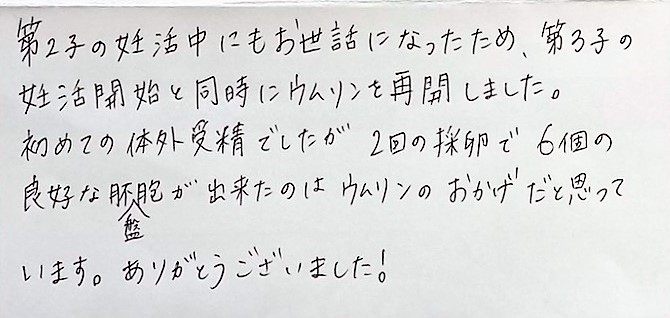 第2子の妊活中にもお世話になったため、第3子の
妊活開始と同時にウムリンを再開しました。
初めての体外受精でしたが 2回の採卵で 6個の
良好な胚盤胞が出来たのは ウムリンの おかげだと思って
います。ありがとうございました!